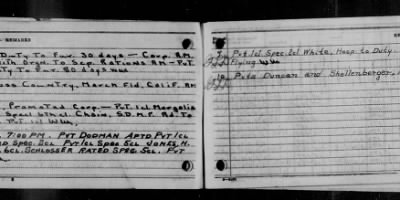 Duty To Fur. 30 days — Corp. RM.
with Orgn. To Sep. Rations RM — Pvt.
ty To Fur. 30 days WM
oss Country, March Fld, Calif. RM
Promoted Corp — Pvt. 1cl Margolis
Spec 6th cl. Chain, S.D. M.P. Rd. To
Pvt 1cl WM.
. 7:00 PM. Pvt DODMAN APTD Pvt 1cl
D SPEC 5CL Pvt 1cl SPEC 6CL JONES, H.
. 6CL. SCHLOSSER RATED SPEC. 5CL. Pvt
7 Pvt 1cl Spec 2cl White, Hosp to Duty.
Flying WM
10 Pvts Duncan and Shellenberger,